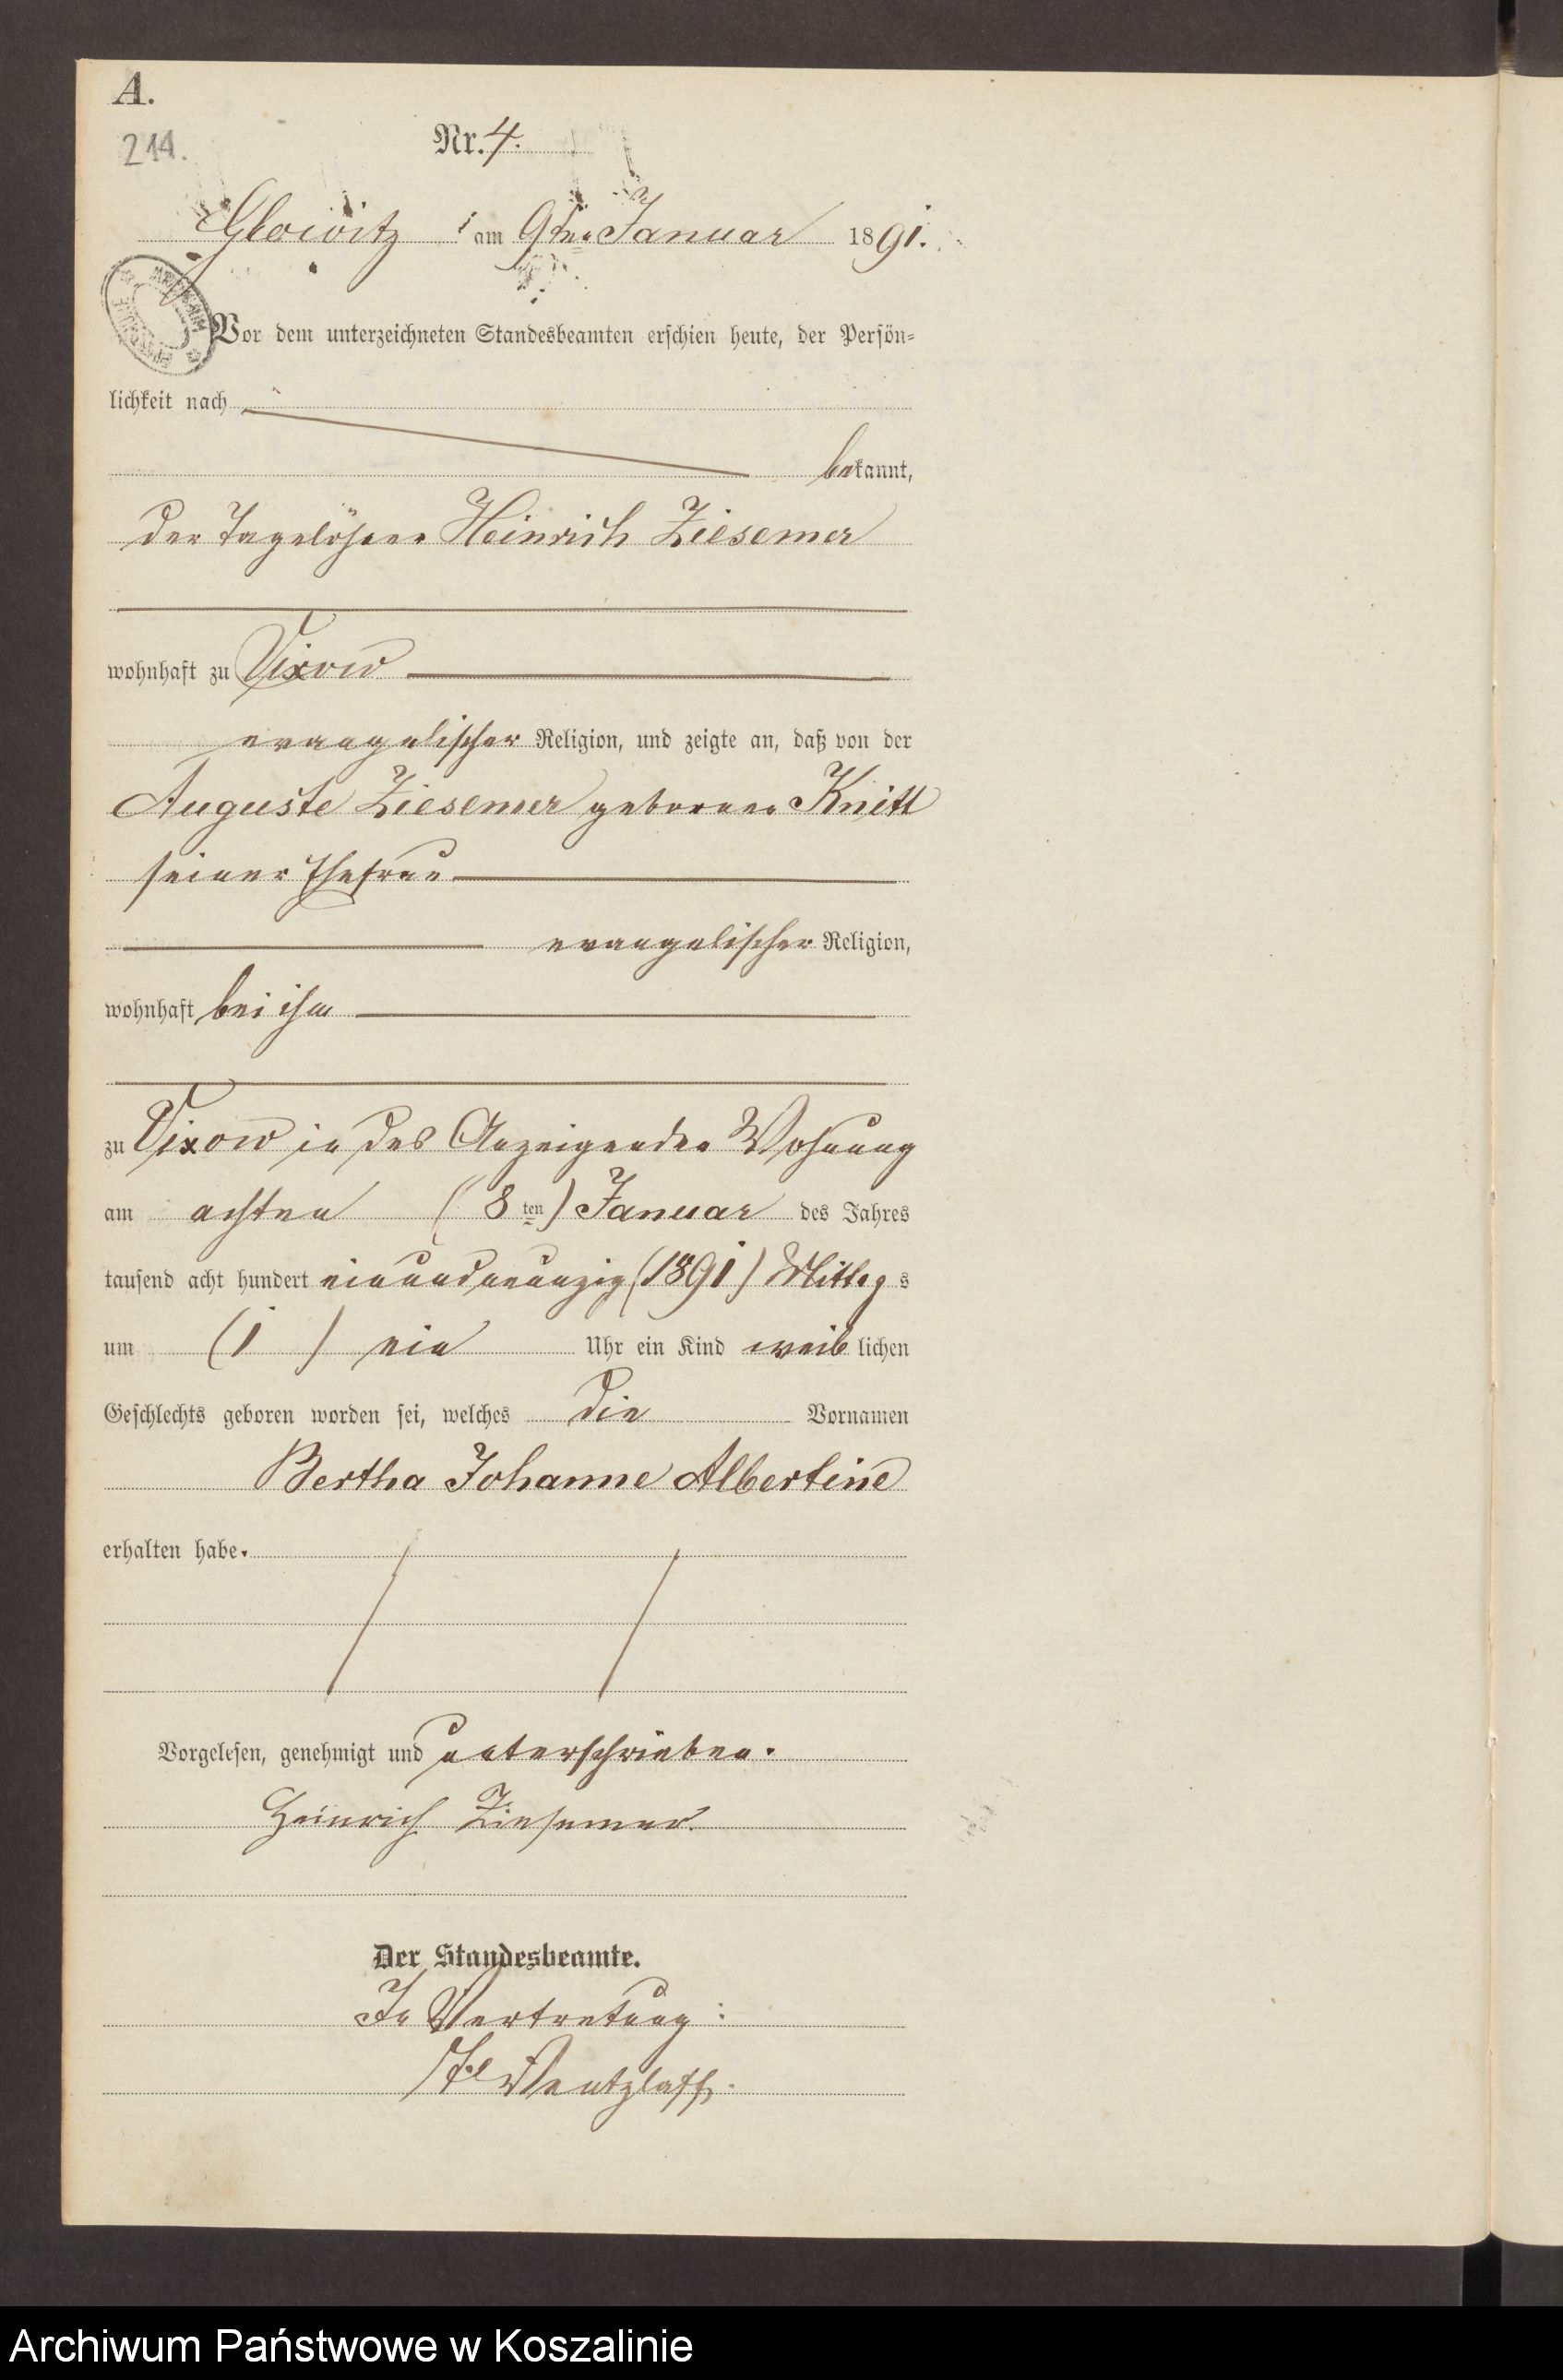 A.
214.
Nr. 4.
Glowitz am 9ten Januar 1891.
Vor dem unterzeichneten Standesbeamten erschien heute, der Persön-
lichkeit nach
bekannt,
der Tagelöhner Heinrich Ziesemer
wohnhaft zu Vixow
evangelischer Religion, und zeigte an, daß von der
Auguste Ziesemer geborene Knitt
seiner Ehefrau
evangelischer Religion,
wohnhaft bei ihm
zu Vixow in des Anzeigenden Wohnung
am achten (8ten) Januar des Jahres
tausend acht hundert einundneunzig (1891) Mittags
um (1) ein Uhr ein Kind weiblichen
Geschlechts geboren worden sei, welches die Vornamen
Bertha Johanne Albertine
erhalten habe.
Vorgelesen, genehmigt und unterschrieben.
Heinrich Ziesemer.
Der Standesbeamte.
In Vertretung:
Wentzlaff.
Archiwum Państwowe w Koszalinie